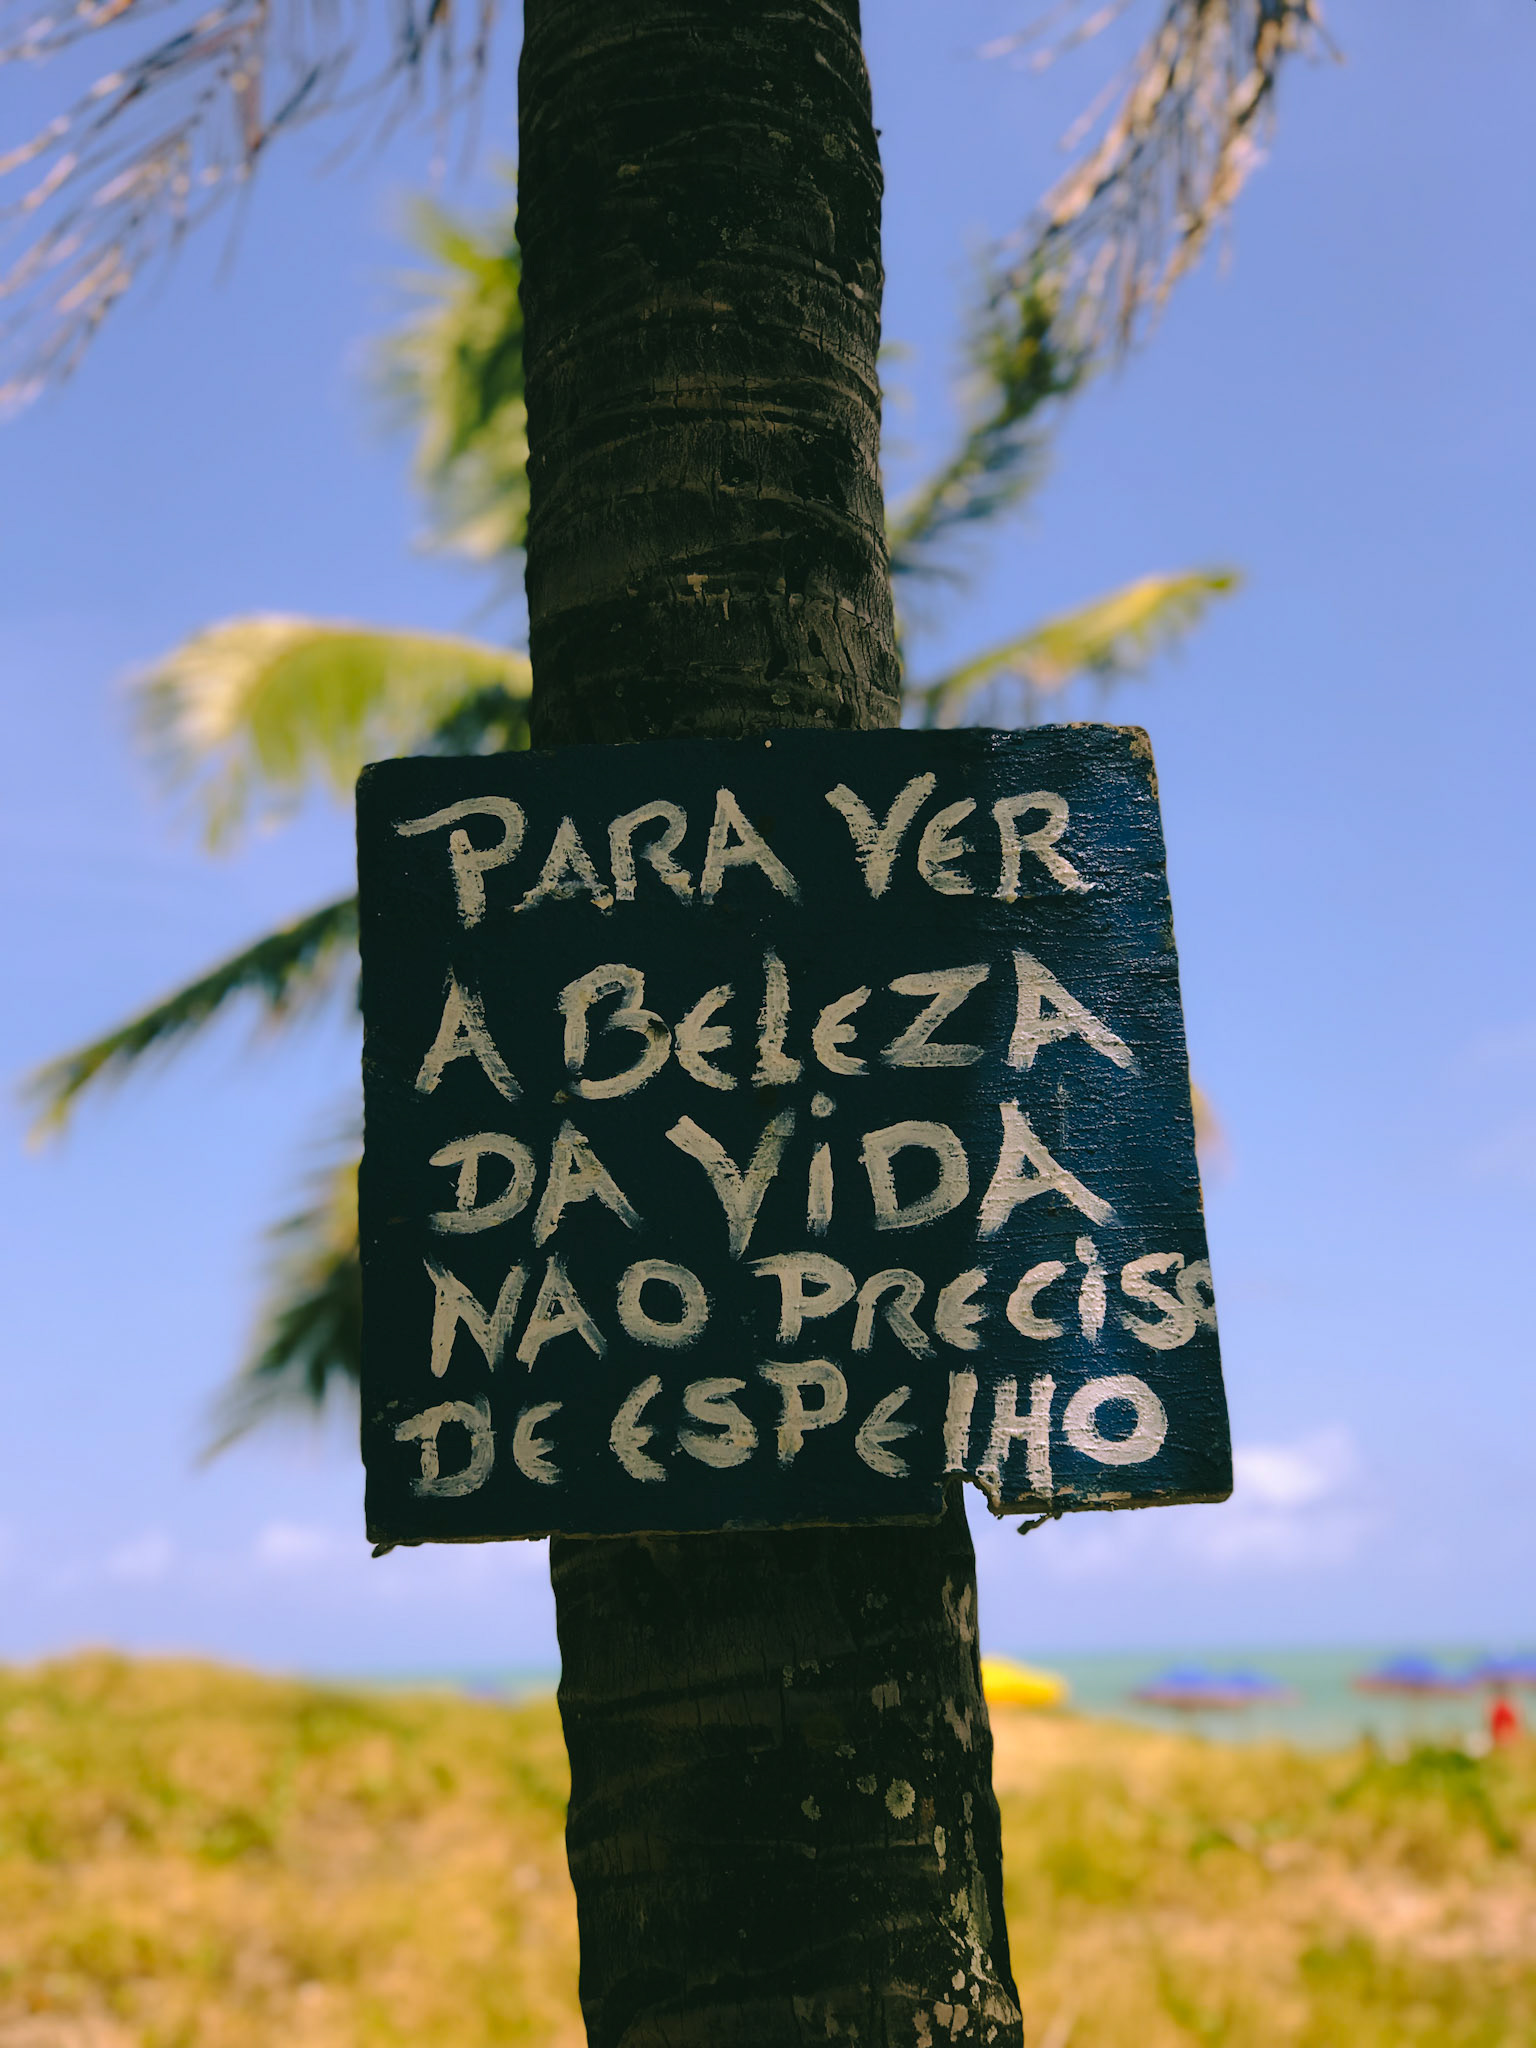 PARA VER
A BELEZA
DA ViDA
NAO PRECiSO
DE ESPElHO